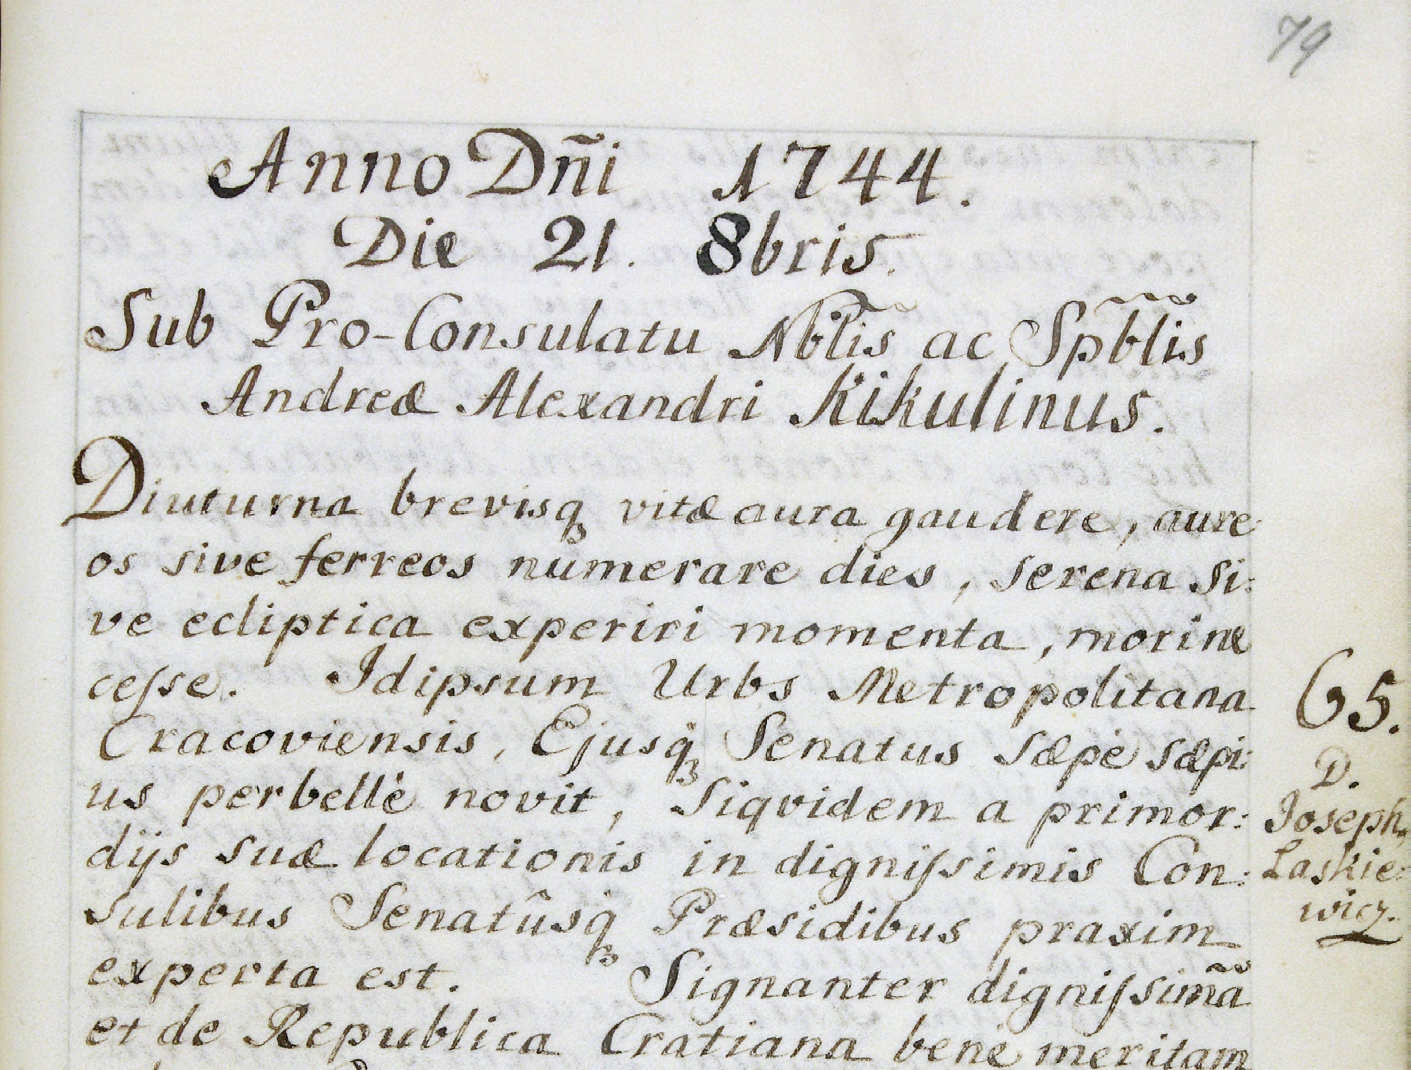 79
Anno Dñi 1744.
Die 21. 8bris.
Sub Pro-Consulatu Nblis̃ ac Spb̃lis
Andreæ Alexandri Kikulinus.
Diuturna brevisqꝫ vitæ aura gaudere, aure
os sive ferreos numerare dies, serena si:
ve ecliptica experiri momenta, mori ne
ceſse. Idipsum Urbs Metropolitana
Cracoviensis, Ejusqꝫ Senatus sæpè sæpi:
us perbellè novit, Siqvidem a primor:
dijs suæ locationis in digniſsimis Con:
sulibus Senatûsqꝫ Præsidibus praxim
experta est. Signanter digniſsim̃a
et de Republica Cratiana benè meritam
65.
D.
Joseph,,
Laskie:
wicz.